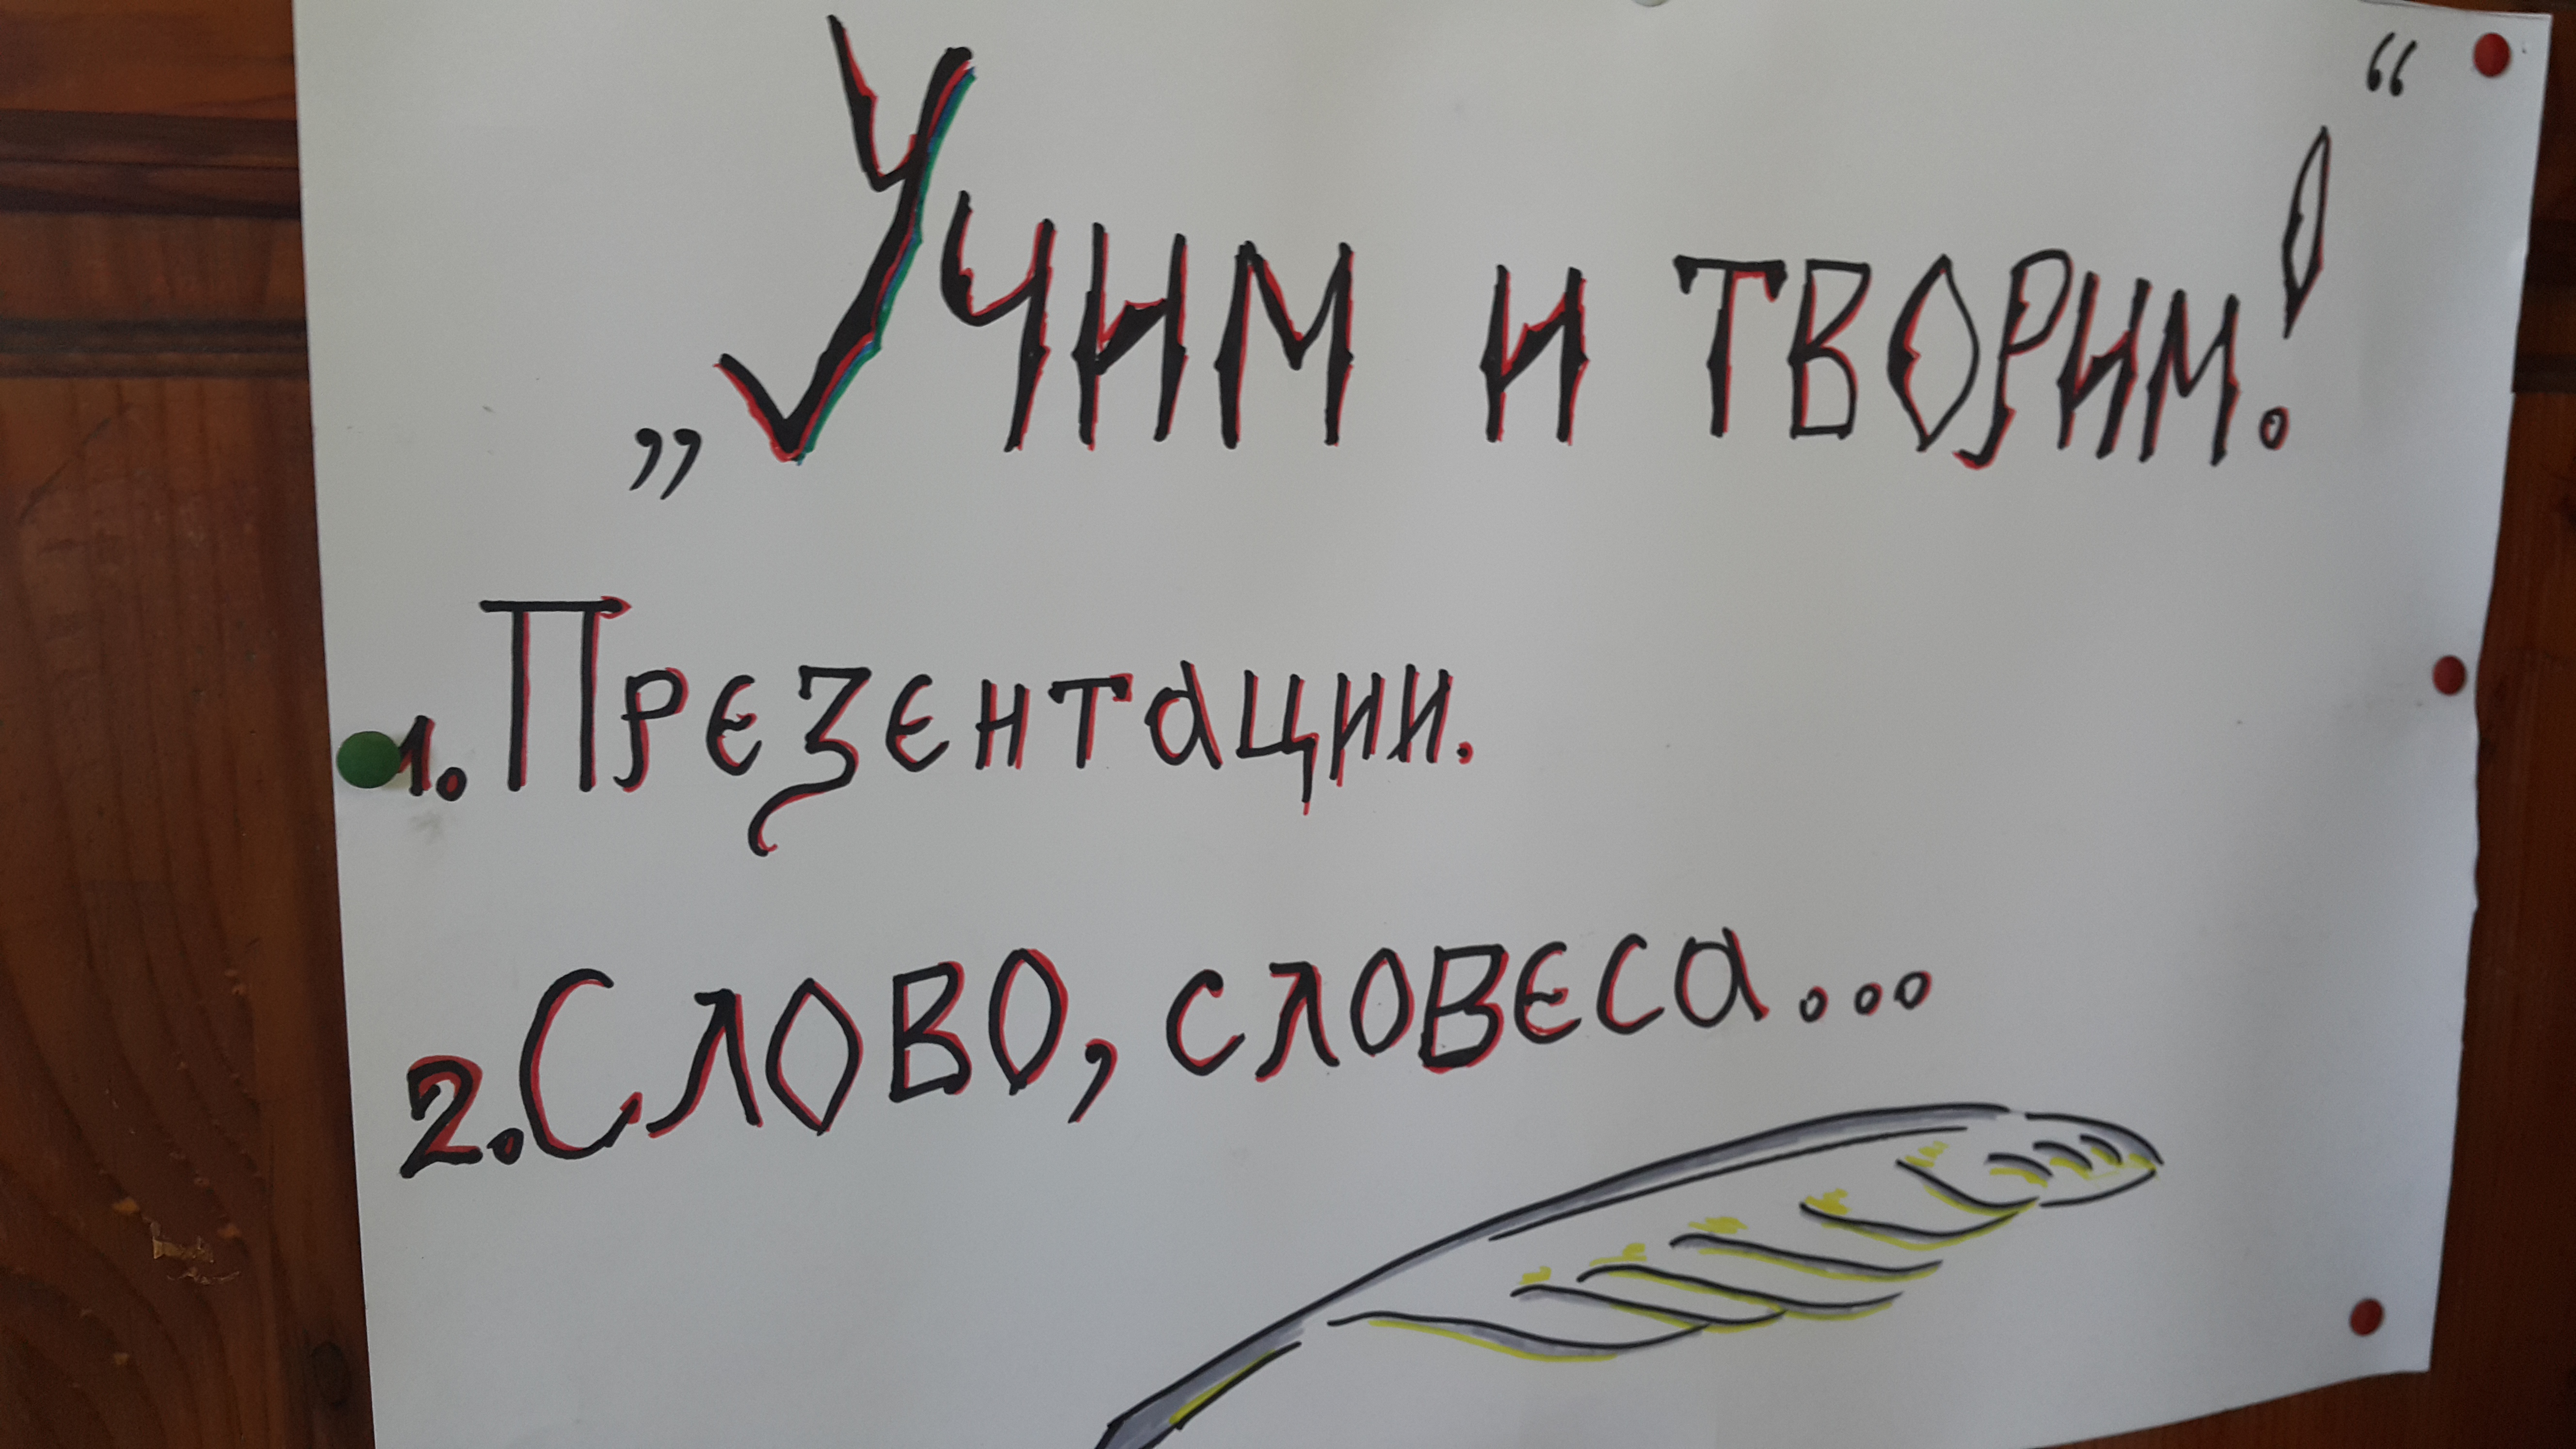 „Учим и творим!“
1. Презентации.
2. Слово, словеса...